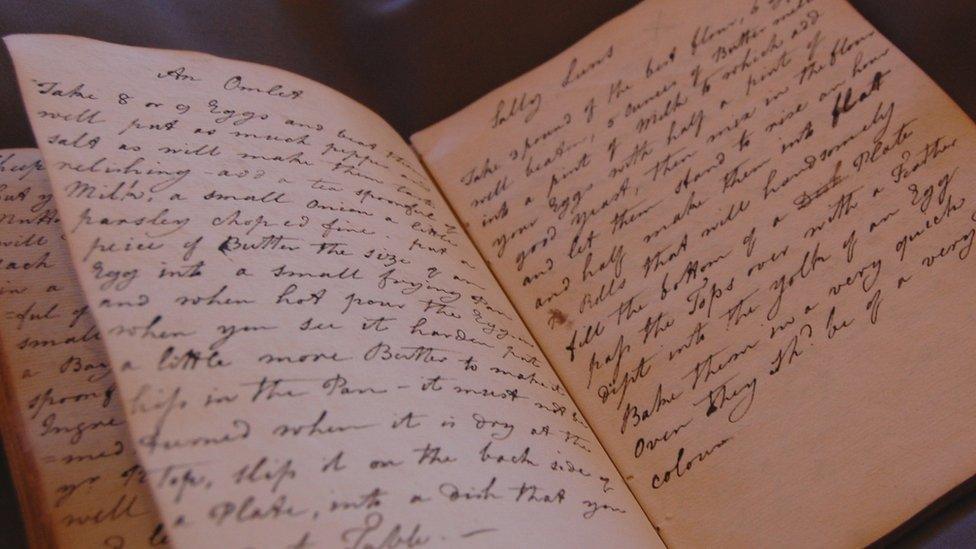 An Omlet
Take 8 or 9 Eggs and beat them
well put as much pepper and
salt as will make them
relishing - add a tea spoonful of
Milk, a small Onion a little
parsley choped fine put a
peice of Butter the size of an
Egg into a small frying Pan
and when hot pour the Eggs
when you see it harden put
a little more Butter to make it
slip in the Pan - it must not be
turned when it is dry at the
Top, slip it on the back side of
a Plate, into a Dish that you
to Table. -
Sally Luns
Take pound of the best flour,
well beaten, Ounces of Butter
into a pint of Milk to which add
your Eggs with half a pint of
good yeast, then mix in the flour
and let them stand to rise an hour
and half make them into flatt
Rolls that will handsomely
fill the bottom of a Dish Plate
pass the Tops over with a Feather
dipt into the yolk of an Egg
Bake them in a very quick
Oven they shd. be of a very
colour
each
in a
small
a
spoonf
Ingre
=med
yr.
well